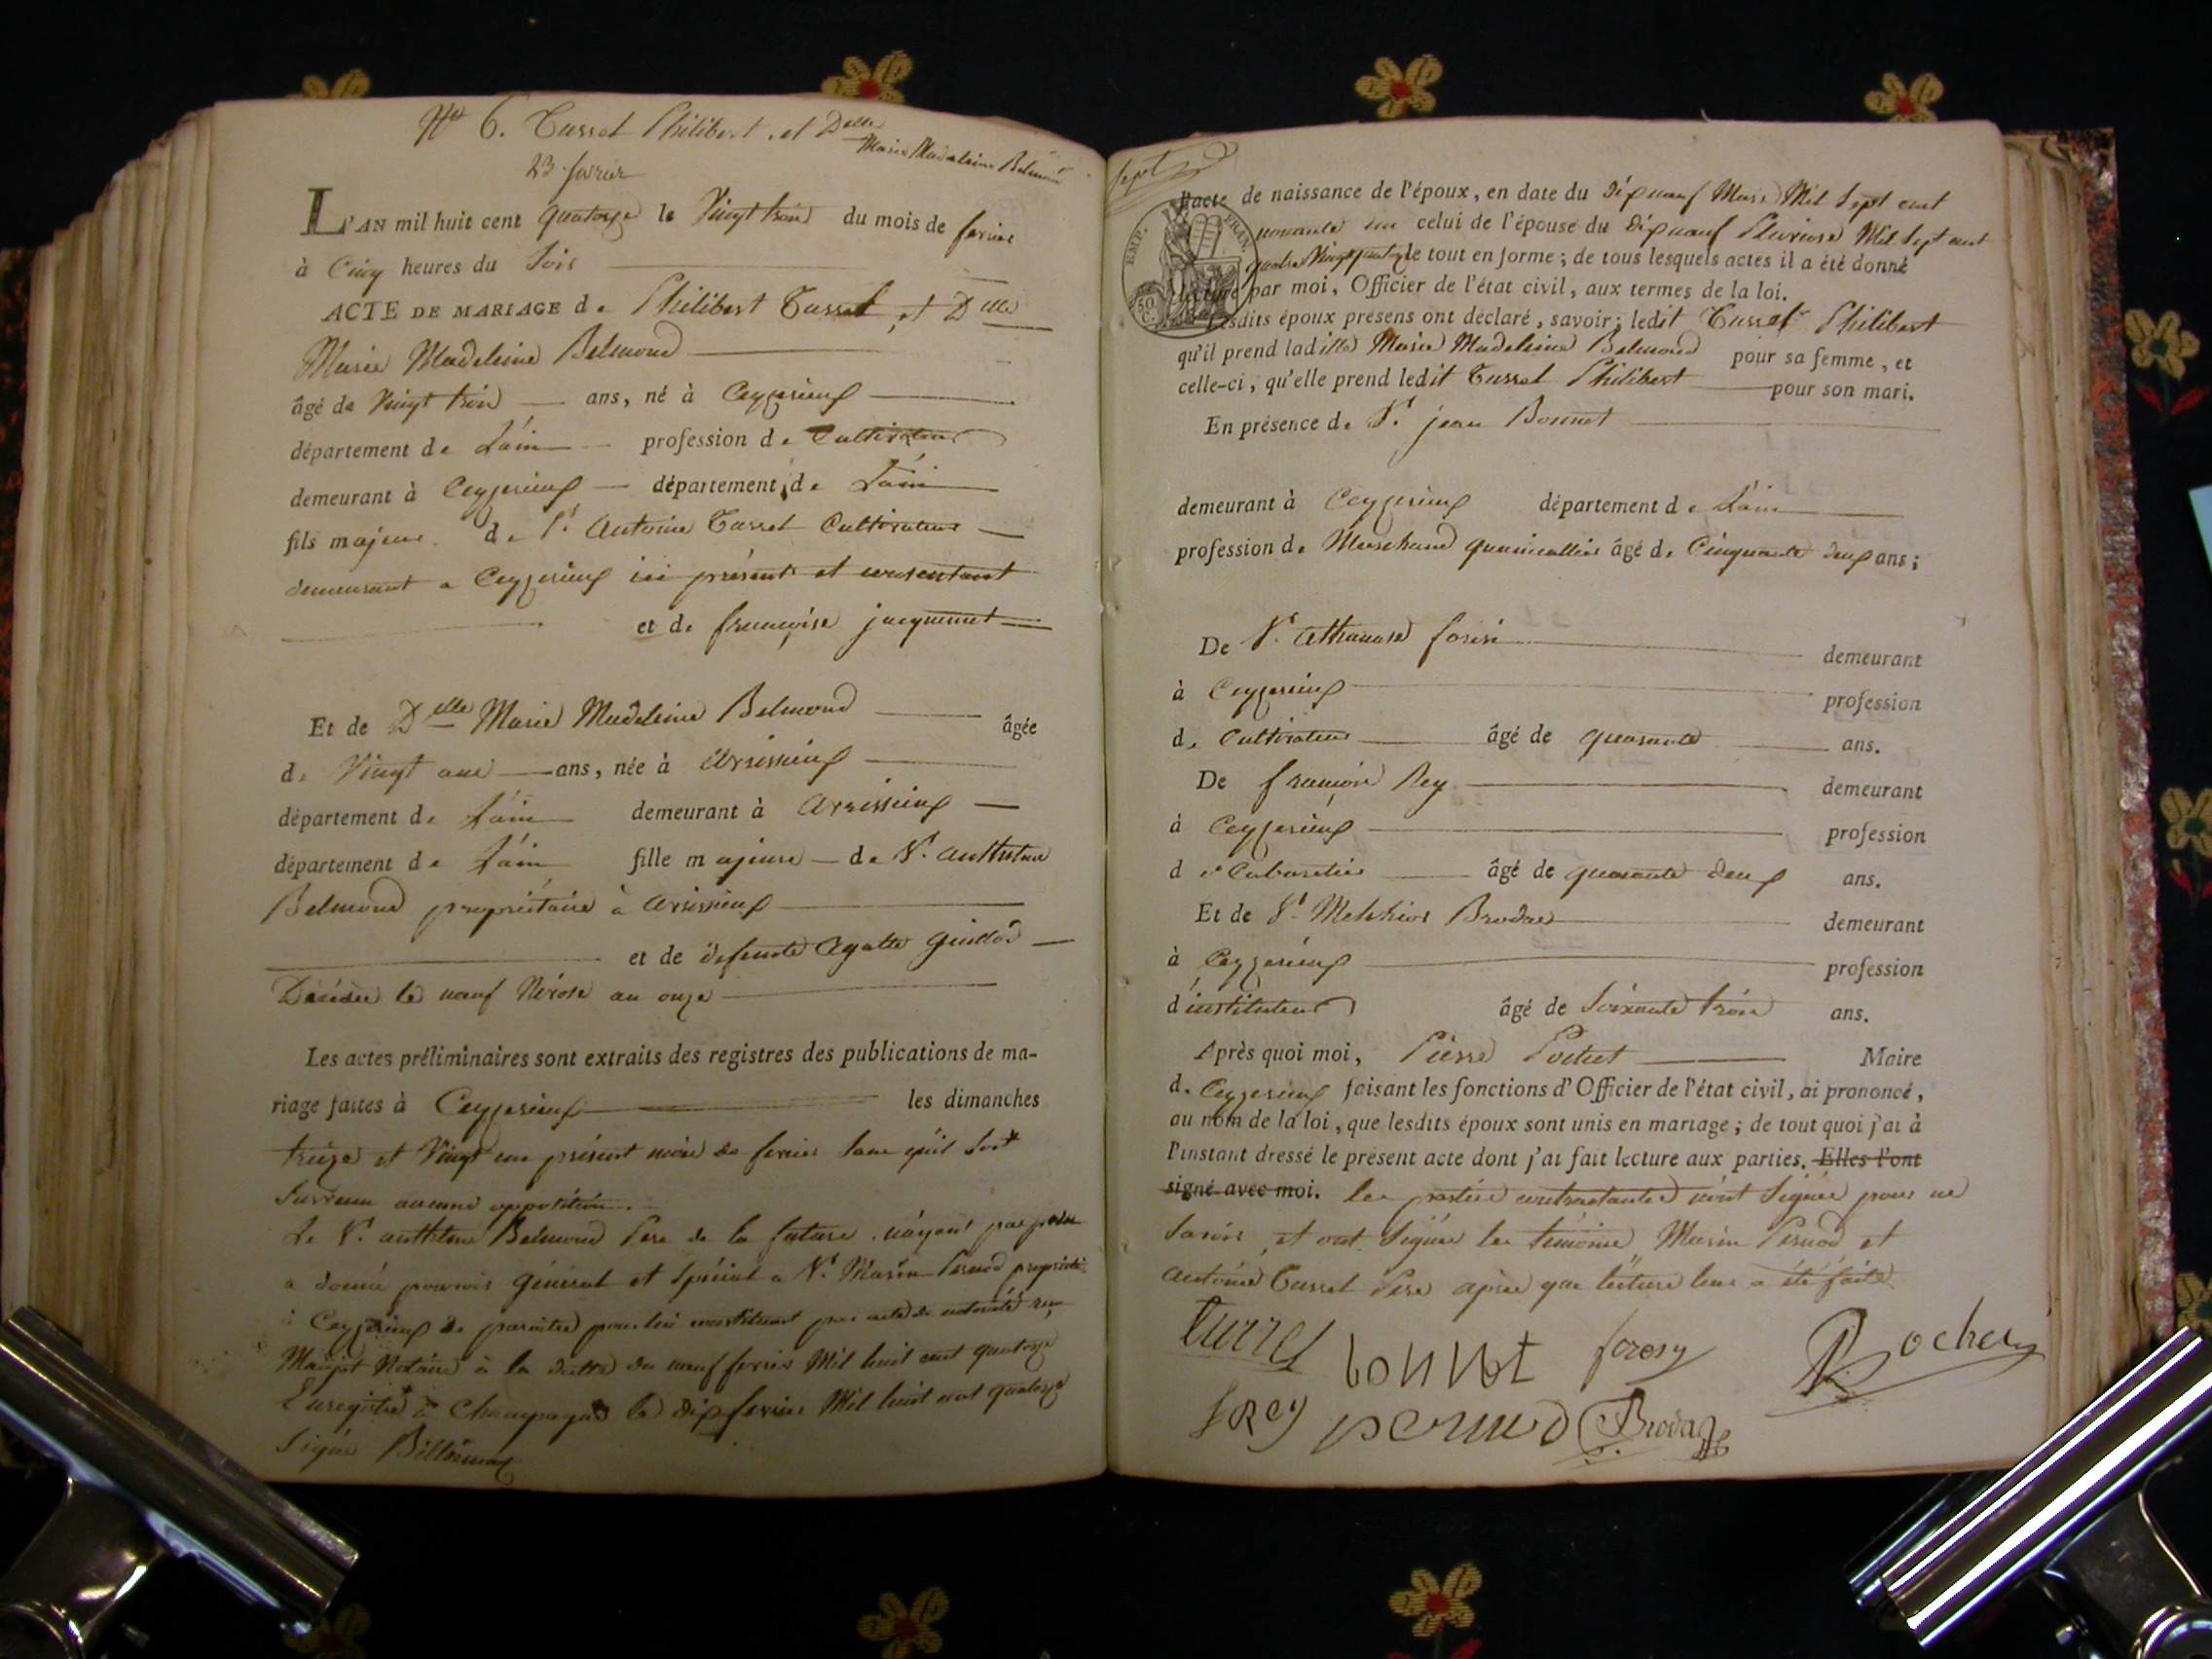 No 6. Turrel Philibert, et Delle
Marie Madeleine Belmond
23 fevrier
L'AN mil huit cent quatorze le Vingt trois du mois de fevrier
à Cinq heures du Soir
ACTE DE MARIAGE de Philibert Turrel et Dlle
Marie Madeleine Belmond
âgé de Vingt trois ans, né à Ceyzerieux
département de Lain profession de Cultivateur
demeurant à Ceyzerieux département de Lain
fils majeur de Sr. Antoine Turrel Cultivateur
demeurant a Ceyzerieux ici présent et consentant
et de françoise jacquemet
Et de Delle Marie Madeleine Belmond âgée
de Vingt ans, née à Arsissieux
département de Lain demeurant à Arsissieux
département de Lain fille majeure de Sr. Anthelme
Belmond propriétaire à Arsissieux
et de defunte Agatte Guillod
Décédée le neuf Nivose an onze
Les actes préliminaires sont extraits des registres des publications de ma-
riage faites à Ceyzerieux les dimanches
treize et Vingt du présent mois de fevrier sans qu'il soit
Survenu aucune opposition.
Le Sr. anthelme Belmond Pere de la future n'ayant pas
a donné pouvoir Général et Spécial a Sr. Marin Pernod
à Ceyzerieux de paroitre pour lui constituant par acte de notorieté
Notaire à la datte du neuf fevrier Mil huit cent quatorze
Enregistré à Champagne le dix fevrier Mil huit cent quatorze
Signé
Sept
l'acte de naissance de l'époux, en date du dixneuf Mars Mil Sept cent
nonante un celui de l'épouse du dixneuf Pluviose Mil Sept cent
quatre Vingt quatorze le tout en forme; de tous lesquels actes il a été donné
lecture par moi, Officier de l'état civil, aux termes de la loi.
EMP. FRAN.
50 C.
Lesdits époux présens ont déclaré, savoir; ledit Turrel Philibert
qu'il prend ladite Marie Madeleine Belmond pour sa femme, et
celle-ci, qu'elle prend ledit Turrel Philibert pour son mari.
En présence de Sr. jean Bonnet
demeurant à Ceyzerieux département de Lain
profession de Marchand quincallier âgé de Cinquante deux ans;
De Sr. Athanase foresi demeurant
à Ceyzerieux profession
de Cultivateur âgé de quarante ans.
De françois Rey demeurant
à Ceyzerieux profession
de Cabaretier âgé de quarante deux ans.
Et de Sr. Melchior Brodae demeurant
à Ceyzerieux profession
d'instituteur âgé de Soixante trois ans.
Après quoi moi, Pierre Maire
de Ceyzerieux faisant les fonctions d'Officier de l'état civil, ai prononcé,
au nom de la loi, que lesdits époux sont unis en mariage; de tout quoi j'ai à
l'instant dressé le présent acte dont j'ai fait lecture aux parties. Elles l'ont
signé avec moi. les parties contractantes n'ont Signée pour ne
Savoir, et ont Signée les témoins, Marin Pernod et
Antoine Turrel Pere après que lecture leur a été faite
turrel bonnet foresy
f Rey pernod Broda